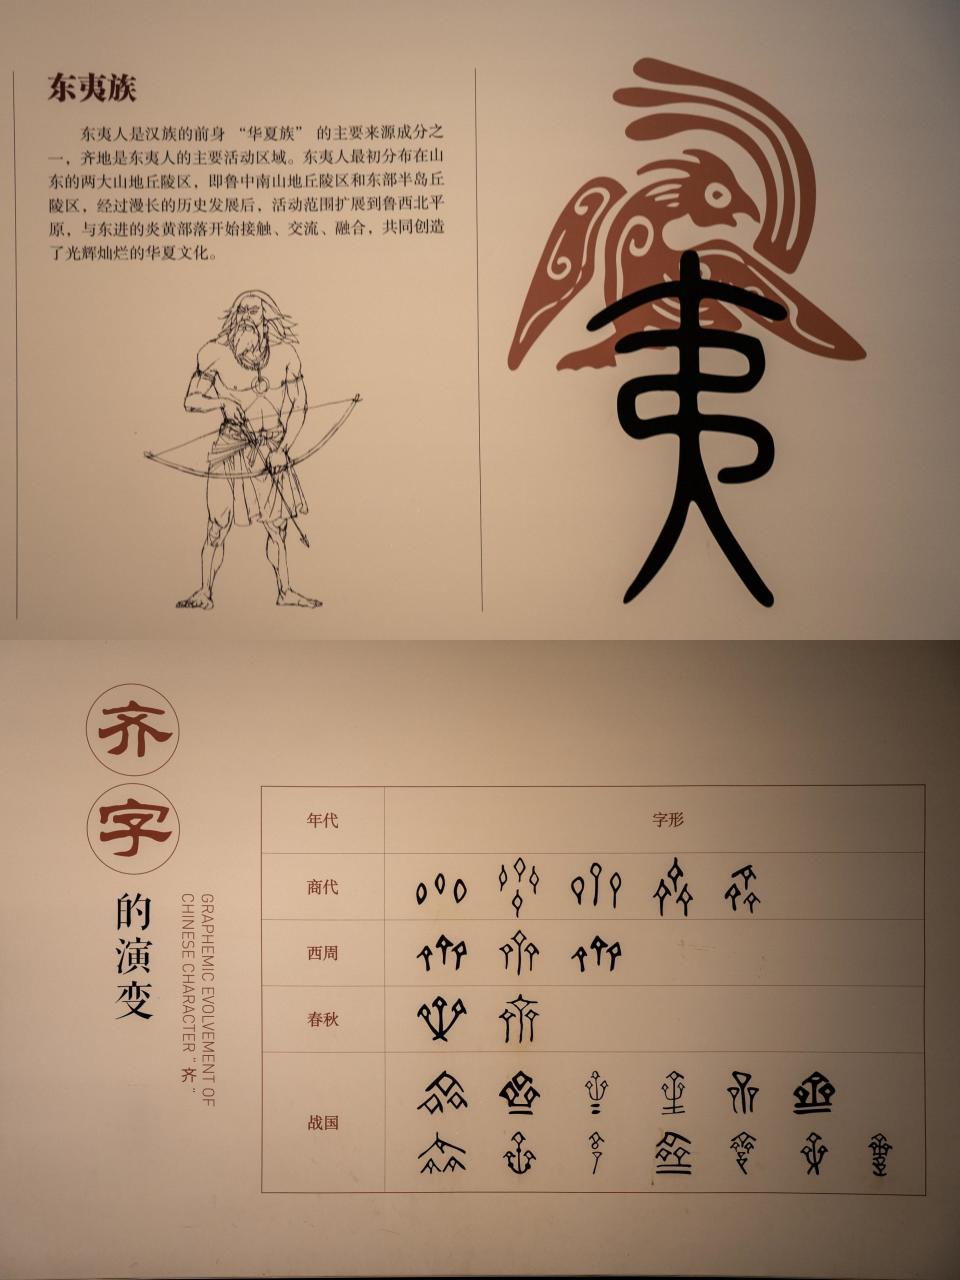 东夷族
东夷人是汉族的前身 “华夏族” 的主要来源成分之
一，齐地是东夷人的主要活动区域。东夷人最初分布在山
东的两大山地丘陵区，即鲁中南山地丘陵区和东部半岛丘
陵区，经过漫长的历史发展后，活动范围扩展到鲁西北平
原，与东进的炎黄部落开始接触、交流、融合，共同创造
了光辉灿烂的华夏文化。
夷
齐字的演变
GRAPHEMIC EVOLVEMENT OF
CHINESE CHARACTER "齐"
年代 字形
商代
西周
春秋
战国